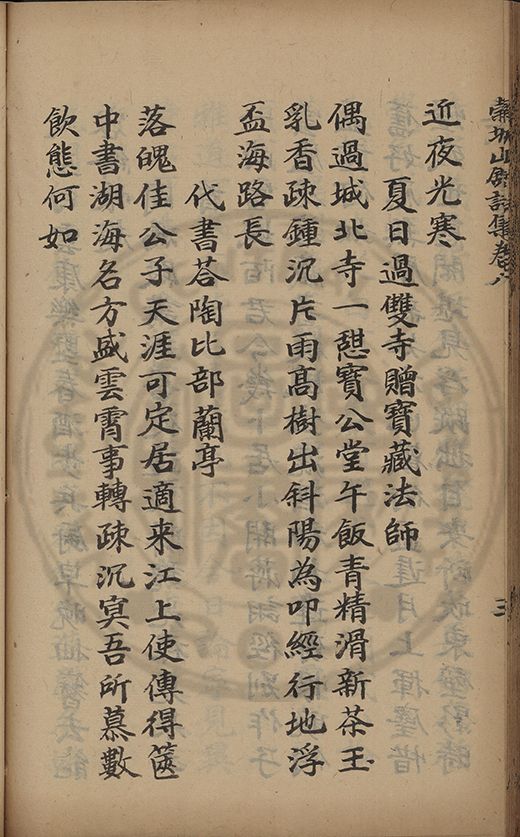 山房詩集卷八
三
近夜光寒
夏日過雙寺贈寶藏法師
偶過城北寺一憩寶公堂午飯青精滑新茶玉
乳香疎鍾沉片雨高樹出斜陽為叩經行地浮
盃海路長
代書荅陶比部蘭亭
落魄佳公子天涯可定居適来江上使傳得篋
中書湖海名方盛雲霄事轉疎沉冥吾所慕數
飲態何如